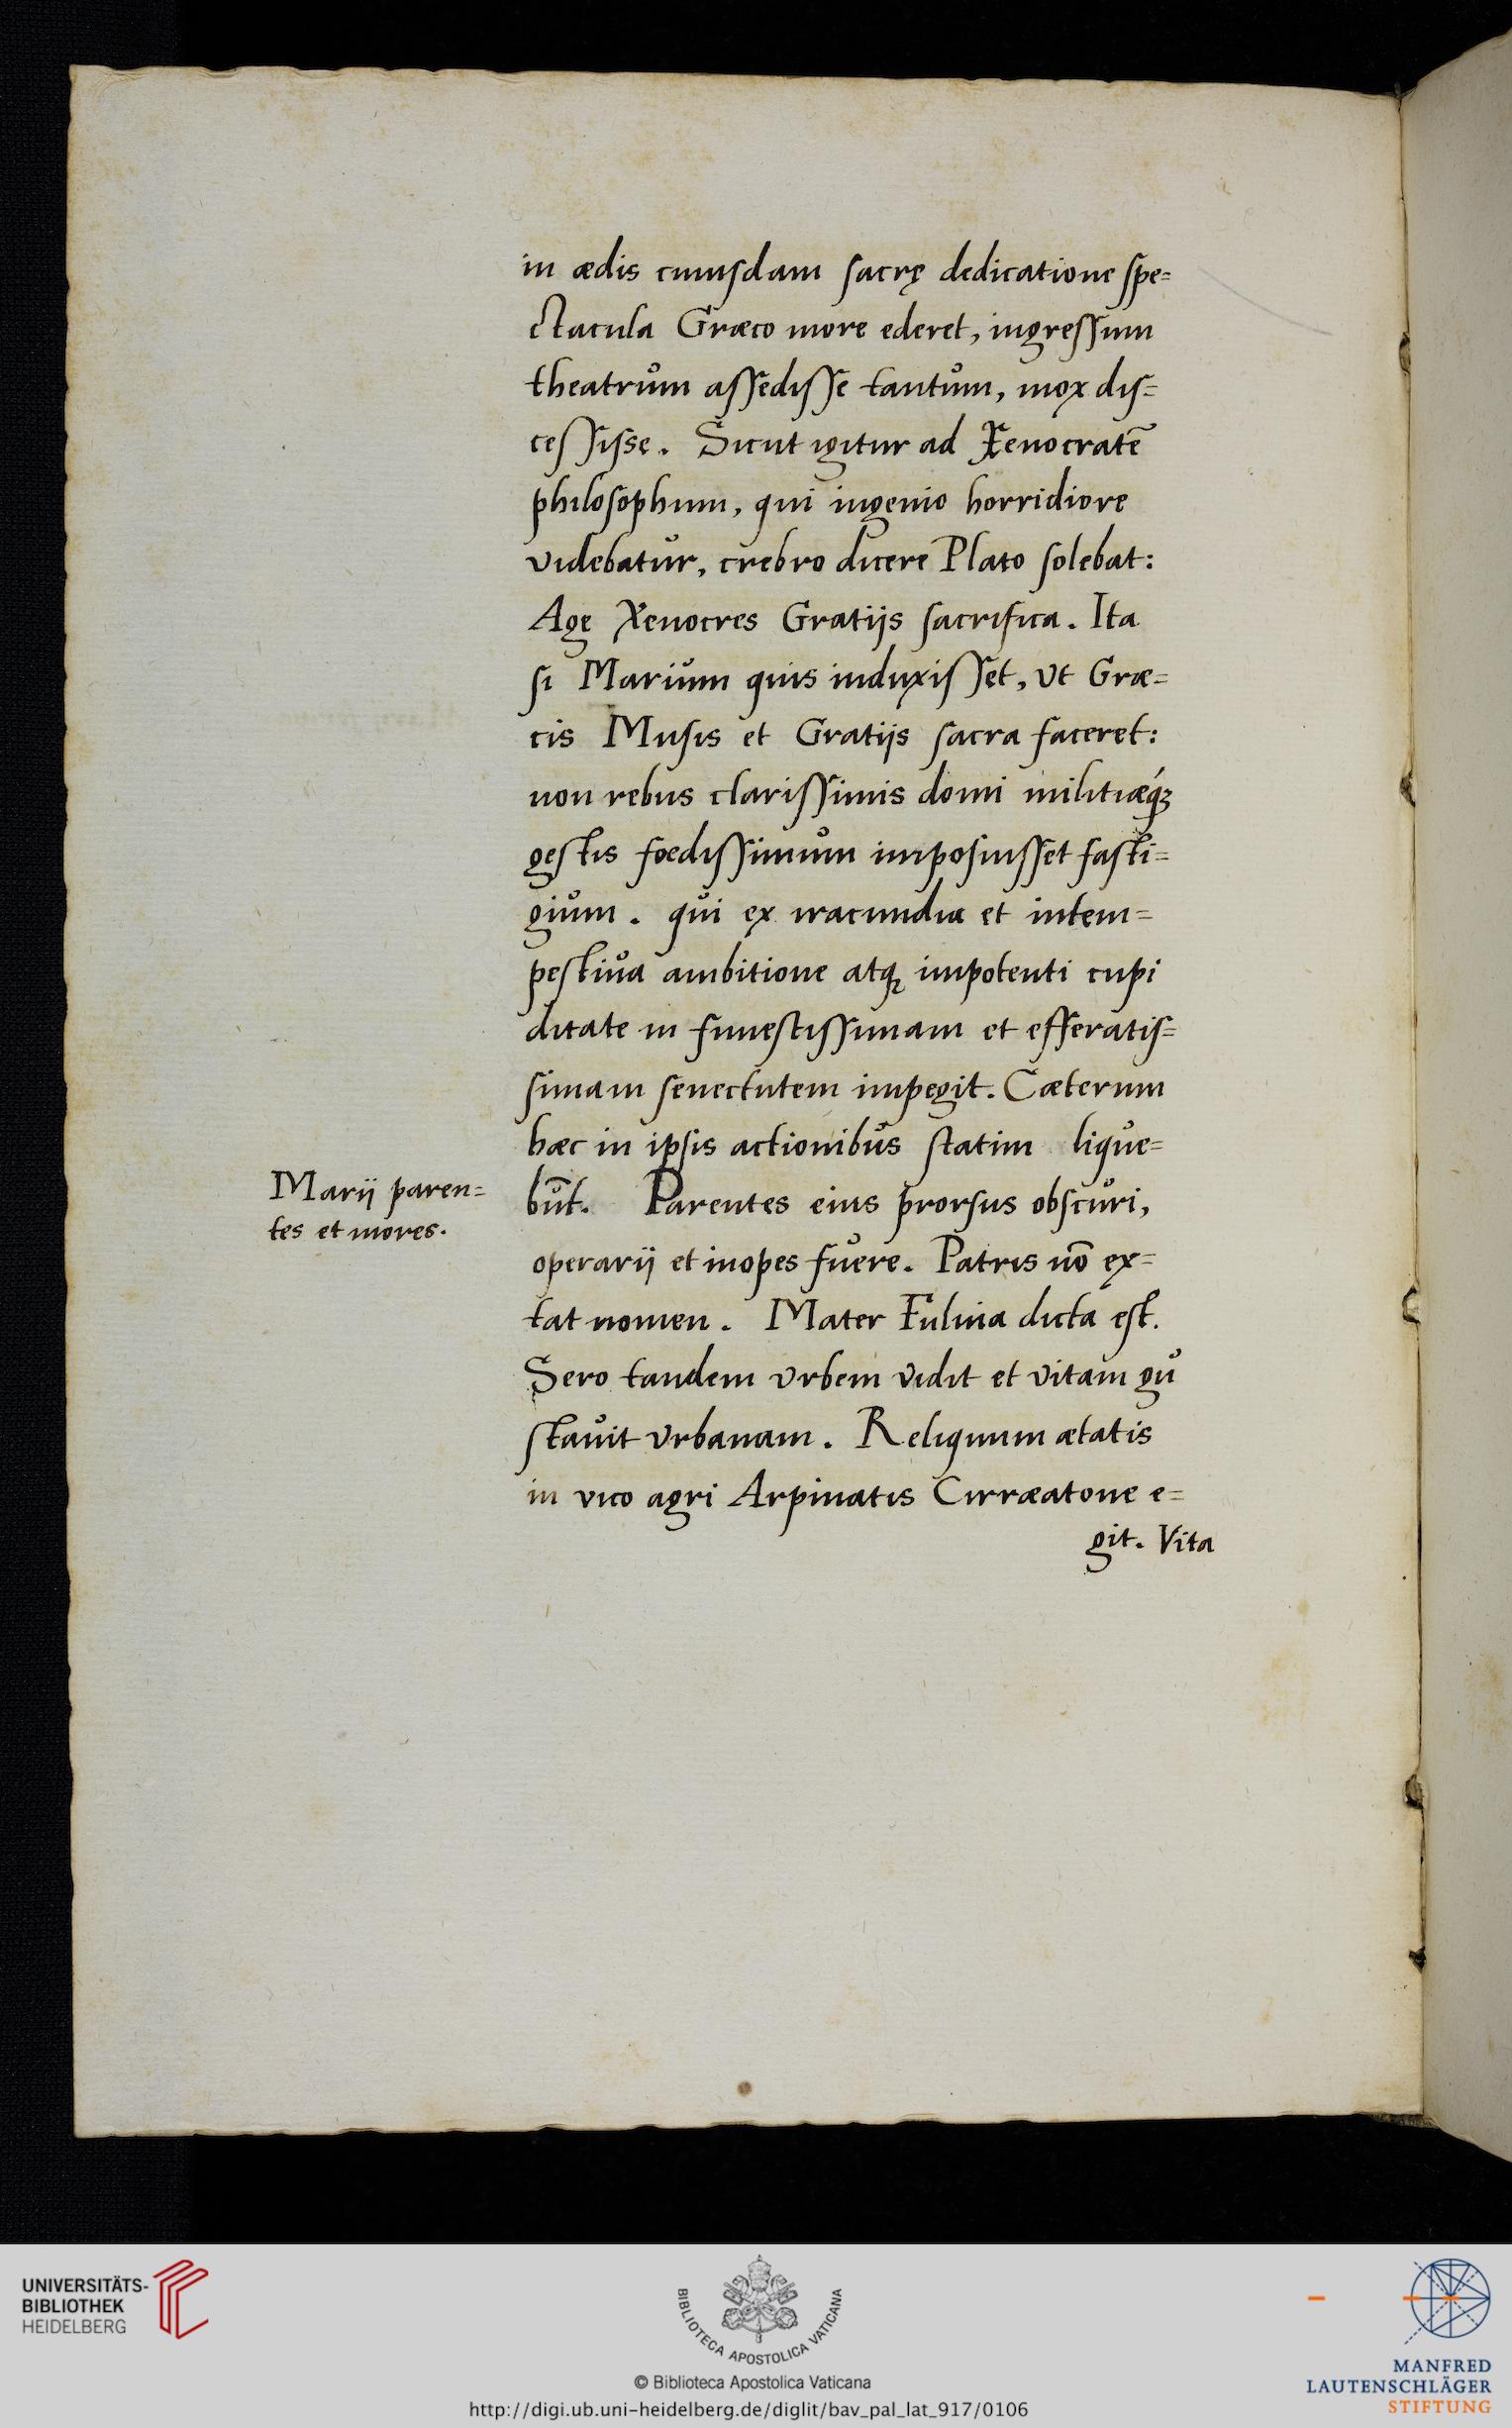 in ædis cuiusdam sacrę dedicatione spe=
ctacula Græco more ederet, ingressum
theatrum assedisse tantum, mox dis=
cessisse. Sicut igitur ad Xenocratē
philosophum, qui ingenio horridiore
videbatur, crebro dicere Plato solebat:
Age Xenocres Gratijs sacrifica. Ita
si Marium quis induxisset, vt Græ=
cis Musis et Gratijs sacra faceret:
non rebus clarissimis domi militiæq́ꝫ
gestis foedissimum imposuisset fasti=
gium. qui ex iracundia et intem=
pestiua ambitione atqꝫ impotenti cupi
ditate in funestissimam et efferatis=
simam senectutem impegit. Cæterum
hæc in ipsis actionibus statim lique=
Marij paren=
tes et mores.
būt. Parentes eius prorsus obscuri,
operarij et inopes fuere. Patris nō ex=
tat nomen. Mater Fuluia dicta est.
Sero tandem vrbem vidit et vitam gu
stauit vrbanam. Reliquum ætatis
in vico agri Arpinatis Cirræatone e=
git. Vita
UNIVERSITÄTS-
BIBLIOTHEK
HEIDELBERG
BIBLIOTECA APOSTOLICA VATICANA
© Biblioteca Apostolica Vaticana
http://digi.ub.uni-heidelberg.de/diglit/bav_pal_lat_917/0106
MANFRED
LAUTENSCHLÄGER
STIFTUNG